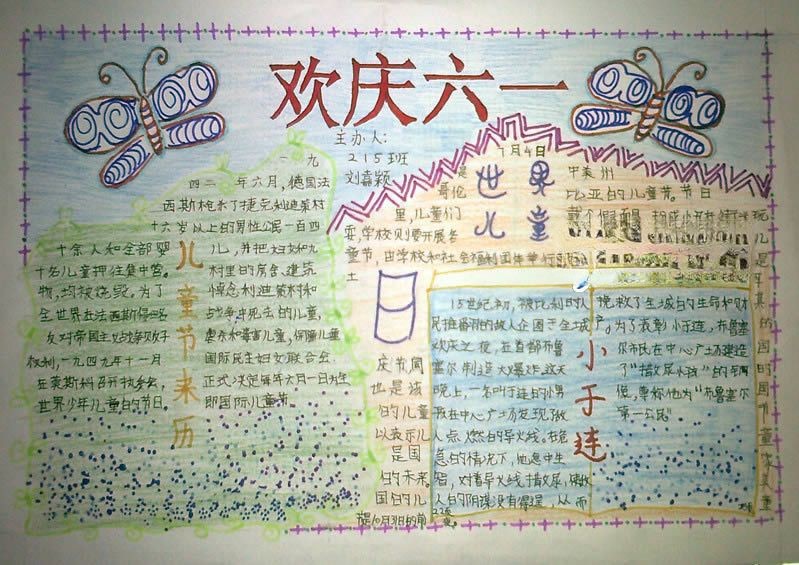 欢庆六一
主办人：
215班
刘嘉颖
儿童节来历
一九
四二年六月，德国法
西斯枪杀了捷克利迪策村
十六岁以上的男性公民一百四
十余人和全部婴
儿，并把妇女和九
十名儿童押往集中营。
村里的房舍、建筑
物，均被烧毁。为了
悼念利迪策村和
全世界在法西斯侵略
战争中死去的儿童，
反对帝国主义战争贩子
虐杀和毒害儿童，保障儿童
权利，一九四九年十一月
国际民主妇女联合会
在莫斯科召开执委会，
正式决定每年六月一日为全
世界少年儿童的节日。
即国际儿童节。
世界儿童
7月4日
是
中美州
哥伦
比亚的儿童节。节日
里，儿童们
耍，学校则要开展各
童节，由学校和社会福利团体举行
土
庆节周
也是该
的儿童
以表示儿
是国
的未来。
国的儿
是10月31日的前
小于连
15世纪初，被比利时人
民推翻的敌人企图于全城
欢庆之夜，在首都布鲁
塞尔制造大爆炸，这天
晚上，一名叫于连的小男
孩在中心广场发现了敌
人点燃的导火线。在危
急的情况下，他急中生
智，对着导火线撒尿，使敌
人的阴谋没有得逞，从而
挽救了全城的生命和财
产。为了表彰小于连，布鲁塞
尔市民在中心广场建造
了“撒尿小孩”的铜
像，尊称他为“布鲁塞尔
第一公民”